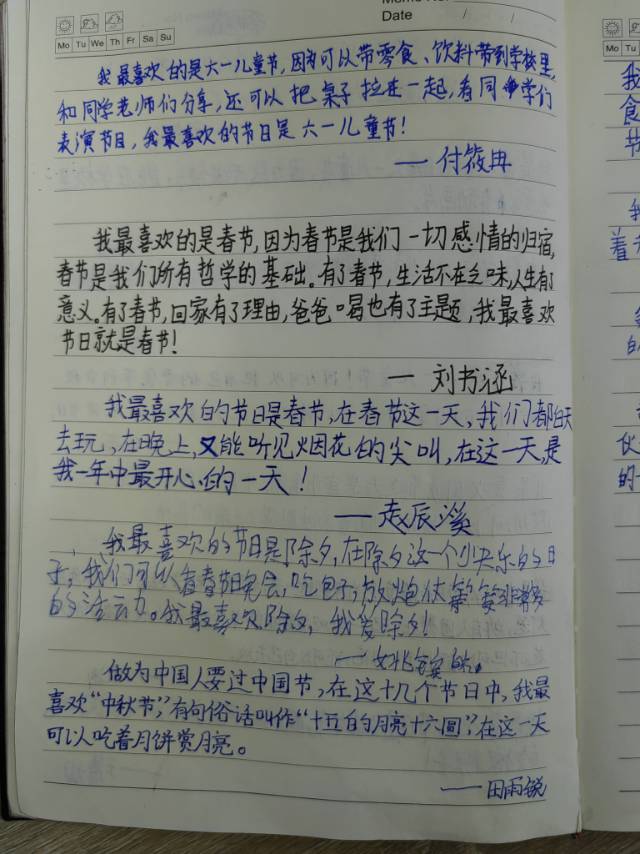 Date / /
Mo Tu We Th Fr Sa Su
我最喜欢的是六一儿童节,因为可以带零食、饮料带到学校里,
和同学老师们分享,还可以把桌子拉在一起,看同学们
表演节目,我最喜欢的节日是六一儿童节!
—付筱冉
我最喜欢的是春节,因为春节是我们一切感情的归宿,
春节是我们所有哲学的基础。有了春节,生活不在乏味,人生有了
意义。有了春节,回家有了理由,爸爸喝也有了主题,我最喜欢
节日就是春节!
—刘书涵
我最喜欢的节日是春节,在春节这一天,我们都白天
去玩,在晚上,又能听见烟花的尖叫,在这一天,是
我一年中最开心的一天!
—赵辰溪
我最喜欢的节日是除夕,在除夕这一个快乐的日
子,我们可以看春节晚会,吃包子,放炮仗等等非常多
的活动。我最喜欢除夕,我爱除夕!
做为中国人要过中国节,在这十几个节日中,我最
喜欢“中秋节”,有句俗话叫作“十五的月亮十六圆”,在这一天
可以吃着月饼赏月亮。
——田雨锐